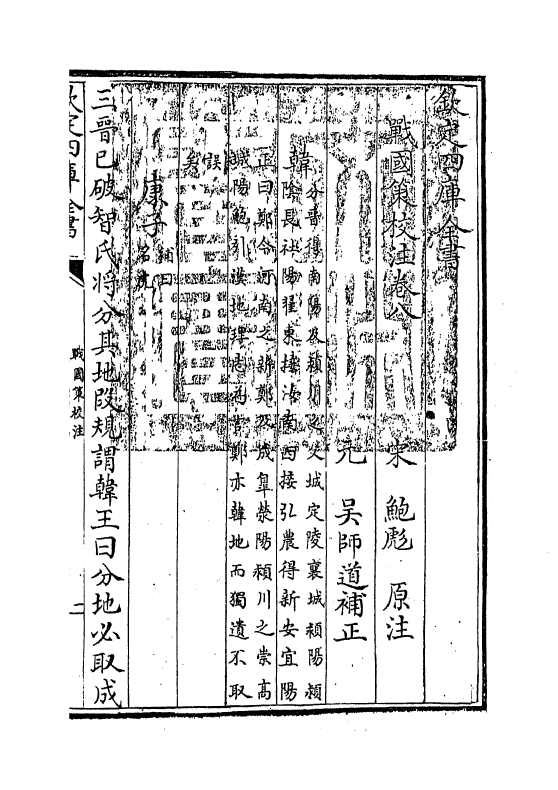 欽定四庫全書
戰國策校注卷八　宋　鮑彪　原注
元　吳師道補正
韓
分晉得南陽及潁川之父城定陵襄城潁陽潁
陰長社陽翟東接汝南西接弘農得新安宜陽
正曰鄭今河南之新鄭及成皐滎陽潁川之崇高
陽鮑引漢地理志而言鄭亦韓地而獨遺不取
誤
矣
康子
補曰
名虎
三晉已破智氏將分其地段規謂韓王曰分地必取成
欽定四庫全書
戰國策校注